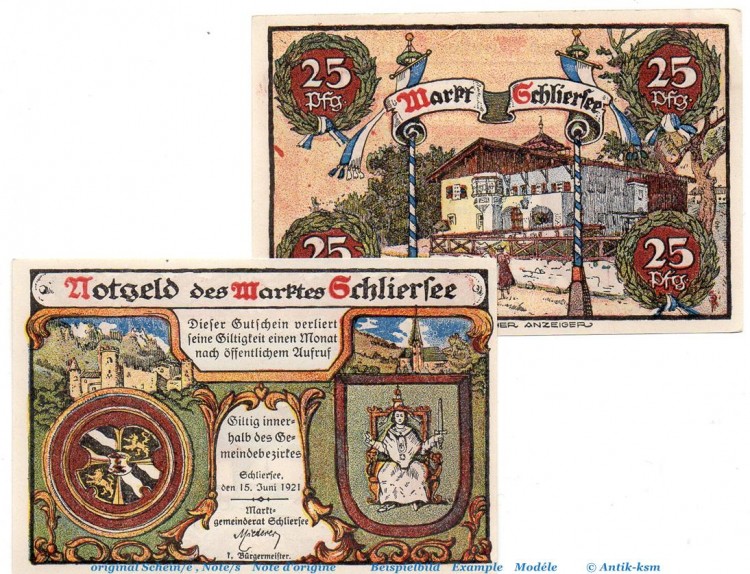 25 Pfg.
Markt Schliersee
25 Pfg.
25
25 Pfg.
ER ANZEIGER
Notgeld des Marktes Schliersee
Dieser Gutschein verliert
seine Giltigkeit einen Monat
nach öffentlichem Aufruf
Giltig inner-
halb des Ge-
meindebezirkes
Schliersee,
den 15. Juni 1921
Markt-
gemeinderat Schliersee
1. Bürgermeister.
original Schein/e , Note/s Note d'origine Beispielbild Example Modéle © Antik-ksm